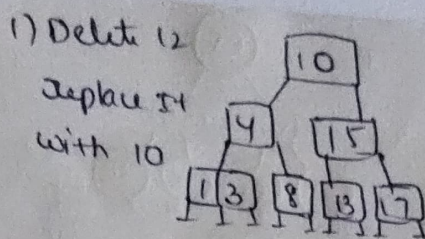 1) Delete 12
Replace it
with 10
10
4 15
1 3 8 13 17